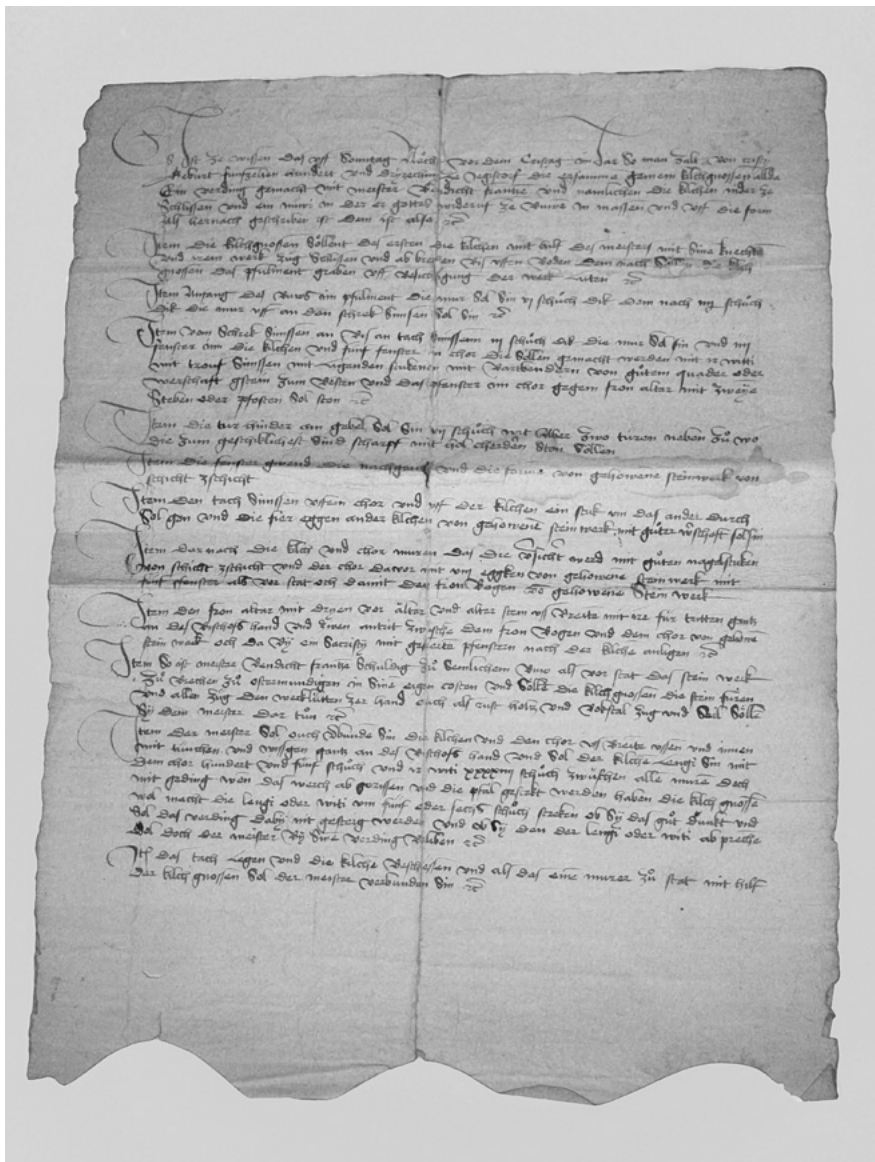 Es ist ze wissen das uff Sonntag nöch vor dem Cristag im Jar so man zalt von cristy
geburt funfzehen hundert und dryzechen ze Jegistorf die ersamme gemein kilchgnossen alda
Ein verding gemacht mit meister Bendicht frantze und namlichen die kilchen nider ze
schlissen und ein nuwi in der er gottes widerumb ze buwen in massen und uff die form
als hernach geschriben ist dem ist also
Item die kilchgnossen söllent des ersten die kilchen mit hilf des meisters mit sine knechte
und irem werk züg schlissen und ab brechen bis uff den boden dem nach söllen die kilch
gnossen das pfulment graben uff besichtigung der werk luten
Item Anfang des buws im pfulment die mur sol sin vj schüch dik dem nach iiij schüch
dik die mur uff an den schrek simsen sol sin
Item vom schrek simssen an bis an tach simssen iij schüch dik die mur sol sin und iiij
fenster in die kilchen und fünf fenster in chor die söllen gemacht werden mit ir witti
mit trouf simssen mit ligenden mit von gütem quader oder
werschaft gstein zum besten und das pfenster im chor gegem fron altar mit zweye
steben oder pfosten sol ston
Item die tür hinder am gebel sol sin vij schüch wit Aber zwo türen neben zü wo
die zum geschiklichest sind scharff mit hol ston söllen
Item die fenster gwend die nachgand und die forme von gehowene steinwerk von
schicht zschicht
Item den tach simssen uff dem chor und uff der kilchen ein stuk um das ander durch
sol gan und die fier eggen an der kilchen von gehowene steinwerk mit güter wschaft sol sin
Item dar nach die kilch und chor muren das die werd mit güten nagelstuken
von schicht zschicht und der chor davor mit viij eggken von gehowene steinwerk mit
fünf pfenster als vor stat och damit den fron bogen vo gehowene stein werk
Item den fron altar mit dryen vor älter und alter stein uff bereitz mit ire für tritten gantz
an des bischofs hand und zwen antrit zwüsche dem fron bogen und dem chor von gehowe
stein werk och da by ein Sacristy mit pfenstern nach der kilche anligen
Item so ist meister Bendicht frantze schuldig zü semlichem buw als vor stat das stein werk
zü brechen zü ostermundigen in sine eigen costen und sölle die kilchgnossen die stein füren
und aller züg den wercklütten zer hand ouch als rust holtz und züg und seil sölle
sy dem meister dar tün
Item der meister sol ouch vbunde sin die kilchen und den chor uff bereitz ussen und innen
mit tünchen und wissgen gantz an des bischofs hand und sol der kilche lengi sin mit
dem chor hundert und fünf schüch und ir witi xxxxiiij schüch zwüschen alle muren doch
mit geding wen das werch ab gerissen und die pfäl gesteckt werden haben die kilch gnosse
wol macht die lengi oder witi um fünf oder sechs schüch streken ob sy das güt dunkt und
sol das verding daby nit gesterg werden und ob sy den der lengi oder witi ab preche
sol doch der meister by sine verding beliben
Ite das tach legen und die kilche beschiessen und als das eine murer zü stat mit hilf
der kilch gnossen sol der meister verbunden sin